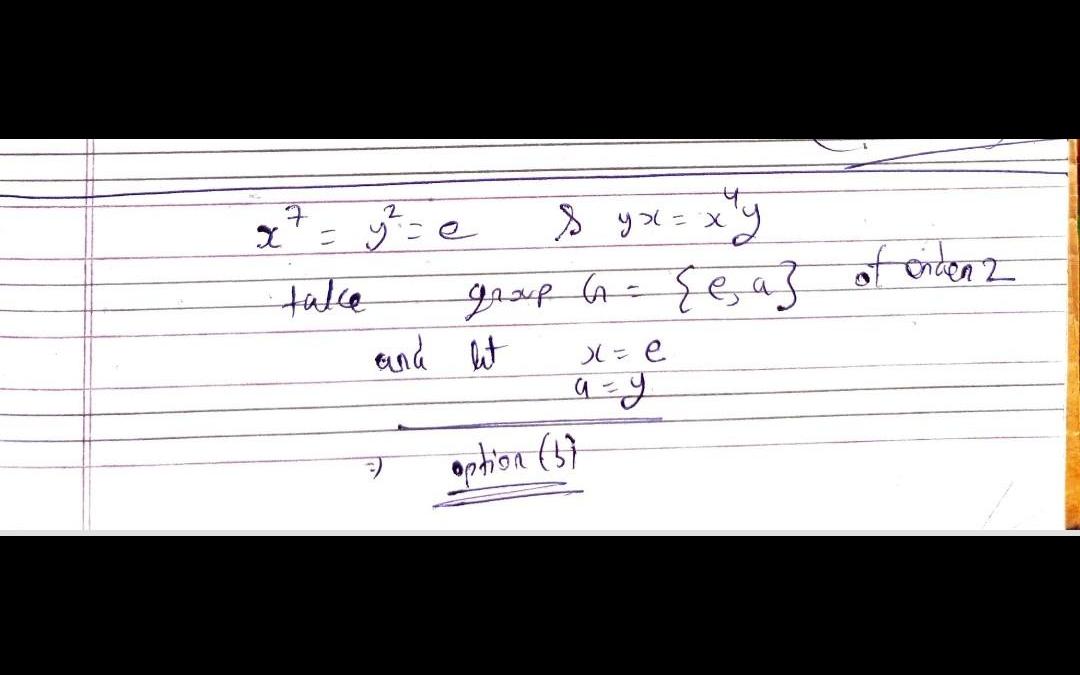 x⁷ = y² = e & yx = x⁴y
take group G = {e, a} of order 2
and let x = e
a = y
⇒ option (b)